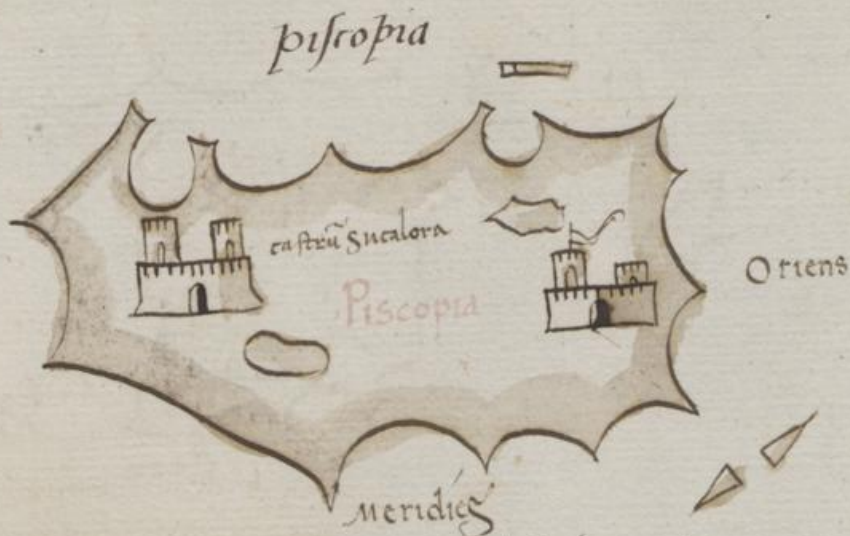 piscopia
castrũ Sucalora
Piscopia
Oriens
Meridies